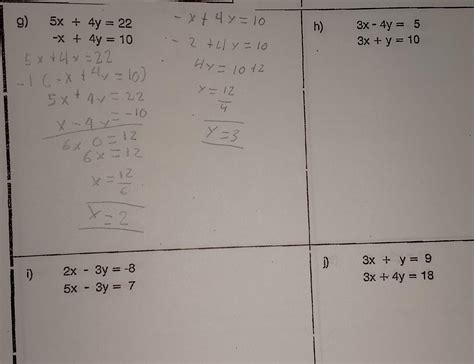 g) 5x + 4y = 22
-x + 4y = 10
5x+4x=22
-1(-x+4y=10)
5x+4y=22
x-4y=-10
6x 0=12
6x=12
x=12
6
x=2
-x+4y=10
-2+4y=10
4y=10+2
y=12
4
y=3
h) 3x - 4y = 5
3x + y = 10
i) 2x - 3y = -8
5x - 3y = 7
j) 3x + y = 9
3x + 4y = 18